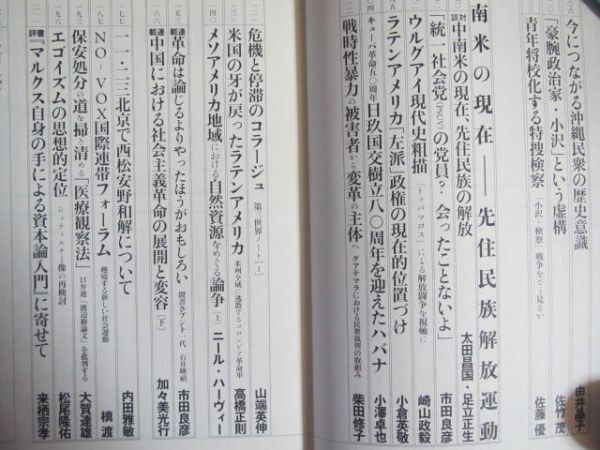 今につながる沖縄民衆の歴史意識 由井晶子
「豪腕政治家・小沢」という虚構 佐竹茂
青年将校化する特捜検察 小沢・検察 戦争をどう見るか 佐藤優
南米の現在――先住民族解放運動
対談 中南米の現在、先住民族の解放 太田昌国・足立正生
統一社会党(PSUV)の党員？ 会ったことないよ」 市田良彦
ウルグアイ現代史粗描 「トゥパマロス」による解放闘争を視軸に 崎山政毅
ラテンアメリカ「左派」政権の現在的位置づけ 小倉英敬
キューバ革命五〇周年 日玖国交樹立八〇周年を迎えたハバナ 小澤卓也
戦時性暴力の被害者から変革の主体へ グアテマラにおける民衆裁判の取組み 柴田修子
危機と停滞のコラージュ 第三世界ノート(一) 山端英伸
米国の牙が戻ったラテンアメリカ 米州全域に逃散するコロンビア革命軍 高橋正則
メソアメリカ地域における自然資源をめぐる論争[上] ニール・ハーヴィー
連載 革命は論じるよりやったほうがおもしろい 聞書きブント一代、石井暎禧 市田良彦
連載 中国における社会主義革命の展開と変容[下] 加々美光行
一一・二三北京で西松安野和解について 内田雅敏
NO-VOX国際連帯フォーラム 越境する新しい社会運動 槙渡
保安処分の道を掃き清める「医療観察法」 日弁連「渡辺動論文」を批判する 大賀達雄
エゴイズムの思想的定位 シュティルナー像の再検討 松尾隆佑
書評『マルクス自身の手による資本論入門』に寄せて 来栖宗孝